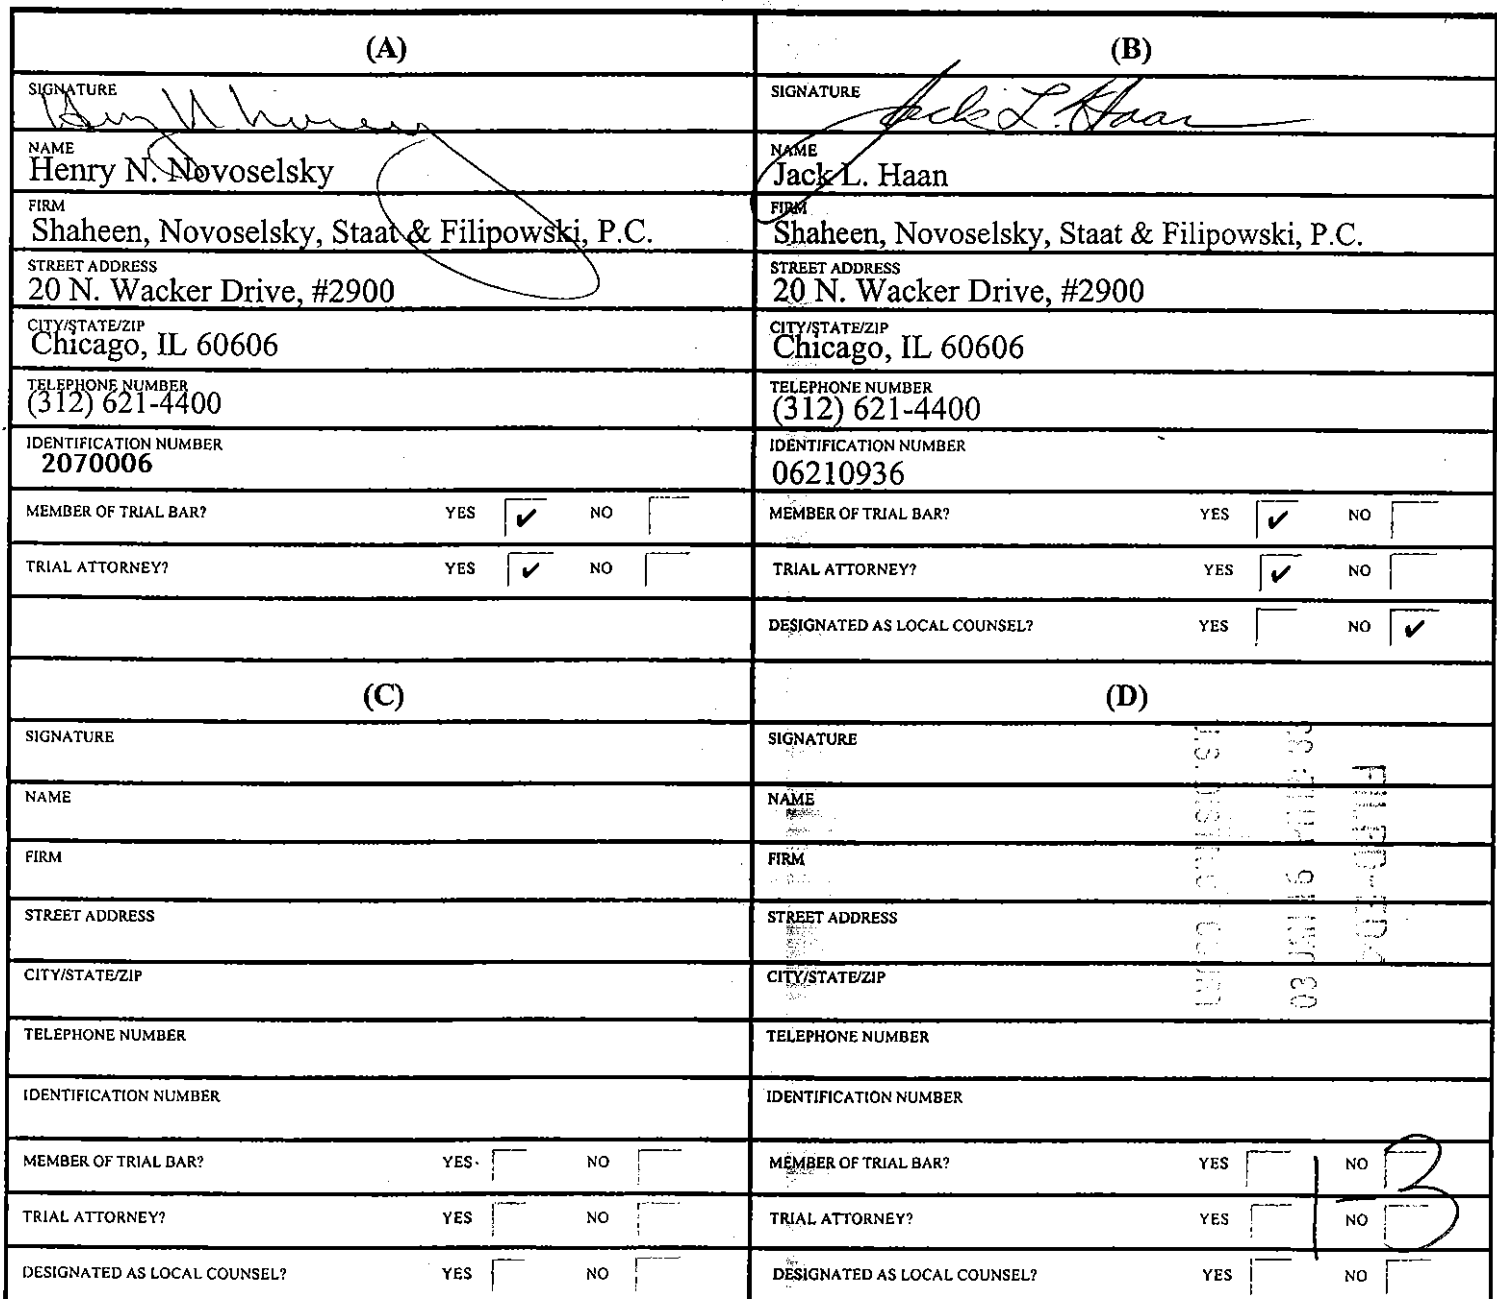 (A)
SIGNATURE
NAME
Henry N. Novoselsky
FIRM
Shaheen, Novoselsky, Staat & Filipowski, P.C.
STREET ADDRESS
20 N. Wacker Drive, #2900
CITY/STATE/ZIP
Chicago, IL 60606
TELEPHONE NUMBER
(312) 621-4400
IDENTIFICATION NUMBER
2070006
MEMBER OF TRIAL BAR? YES ✔ NO
TRIAL ATTORNEY? YES ✔ NO
(B)
SIGNATURE Jack L. Haan
NAME
Jack L. Haan
FIRM
Shaheen, Novoselsky, Staat & Filipowski, P.C.
STREET ADDRESS
20 N. Wacker Drive, #2900
CITY/STATE/ZIP
Chicago, IL 60606
TELEPHONE NUMBER
(312) 621-4400
IDENTIFICATION NUMBER
06210936
MEMBER OF TRIAL BAR? YES ✔ NO
TRIAL ATTORNEY? YES ✔ NO
DESIGNATED AS LOCAL COUNSEL? YES NO ✔
(C)
SIGNATURE
NAME
FIRM
STREET ADDRESS
CITY/STATE/ZIP
TELEPHONE NUMBER
IDENTIFICATION NUMBER
MEMBER OF TRIAL BAR? YES NO
TRIAL ATTORNEY? YES NO
DESIGNATED AS LOCAL COUNSEL? YES NO
(D)
SIGNATURE
NAME
FIRM
STREET ADDRESS
CITY/STATE/ZIP
TELEPHONE NUMBER
IDENTIFICATION NUMBER
MEMBER OF TRIAL BAR? YES NO
TRIAL ATTORNEY? YES NO
DESIGNATED AS LOCAL COUNSEL? YES NO
1-3